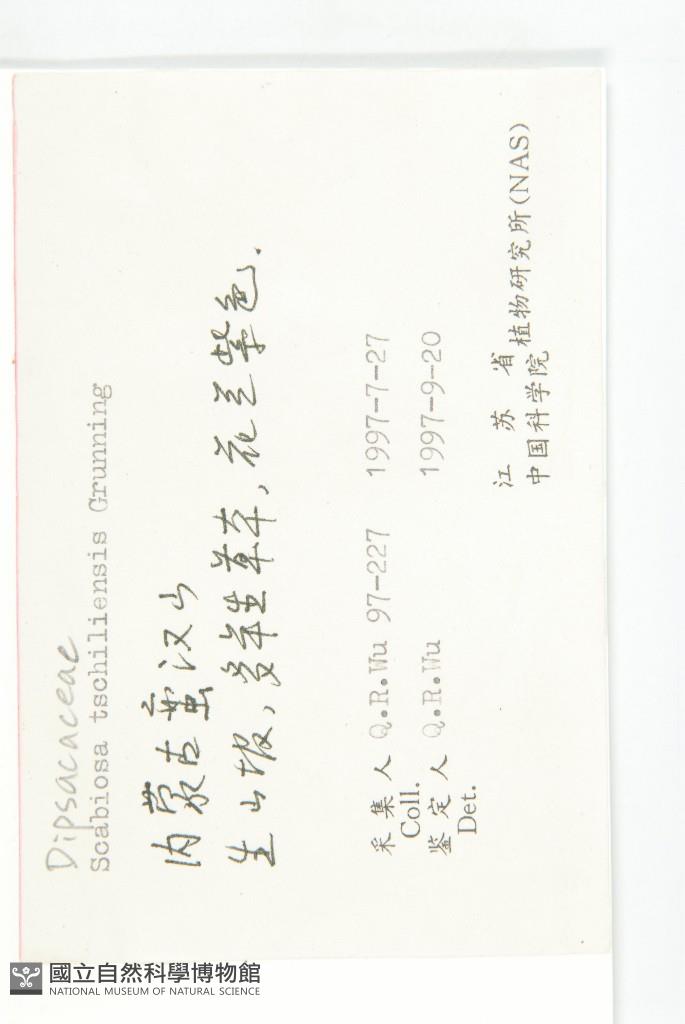 Dipsacaceae
Scabiosa tschiliensis Grunning
内蒙古蛮汉山
生山坡，多年生草本，花兰紫色．
采集人 Q.R.Wu 97-227 1997-7-27
Coll.
鉴定人 Q.R.Wu 1997-9-20
Det.
江苏省植物研究所(NAS)
中国科学院
國立自然科學博物館
NATIONAL MUSEUM OF NATURAL SCIENCE